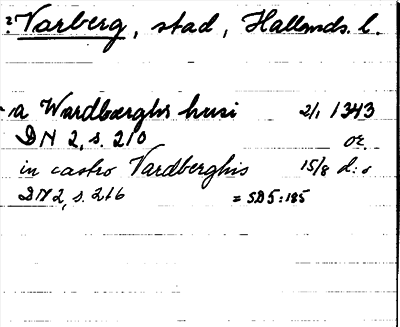 Varberg, stad, Hallands l.
a Wardbærghs husi 2/1 1343
DN 2, s. 210 or.
in castro Vardberghis 15/8 d:o
DN 2, s. 216 = SD 5:185